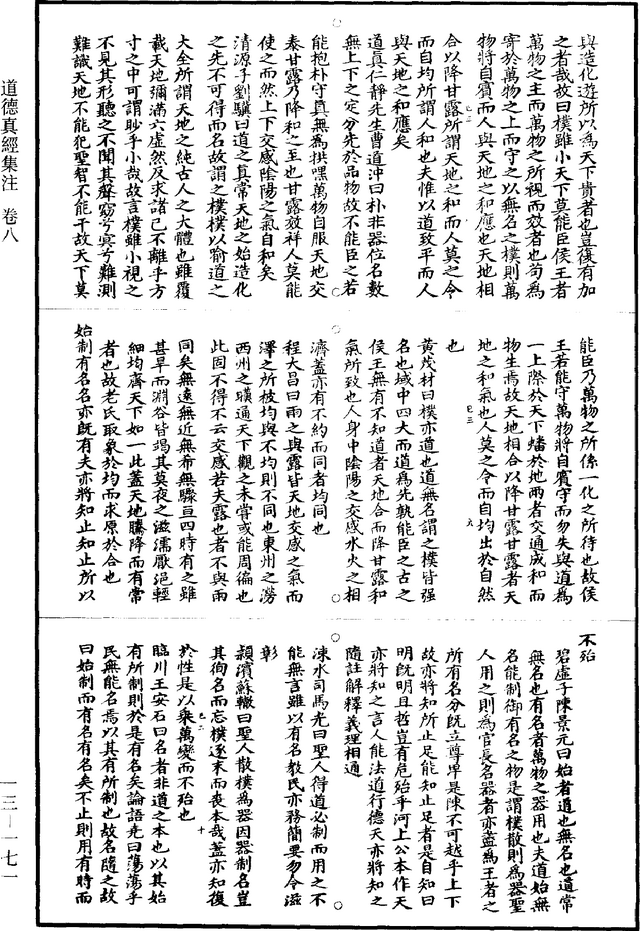 道德真經集注 卷八
一三—一七一
與造化遊所以為天下貴者也豈復有加
之者哉故曰樸雖小天下莫能臣侯王者
萬物之主而萬物之所視而效者也苟為
寄於萬物之上而守之以無名之樸則萬
物將自賓而人與天地之和應也天地相
合以降甘露所謂天地之和而人莫之令
而自均所謂人和也夫惟以道致平而人
與天地之和應矣
道真仁靜先生曹道沖曰朴非器位名數
無上下之定分先於品物故不能臣之若
能抱朴守真無為拱嘿萬物自服天地交
泰甘露乃降和之至也甘露效祥人莫能
使之而然上下交感陰陽之氣自和矣
清源子劉驥曰道之真常天地之始造化
之先不可得而名故謂之樸樸以喻道之
大全所謂天地之純古人之大體也雖覆
載天地彌滿六虛然反求諸己不離乎方
寸之中可謂眇乎小哉故言樸雖小視之
不見其形聽之不聞其聲窈兮冥兮難測
難識天地不能犯聖智不能干故天下莫
能臣乃萬物之所係一化之所待也故侯
王若能守萬物將自賓守而勿失與道為
一上際於天下蟠於地兩者交通成和而
物生焉故天地相合以降甘露甘露者天
地之和氣也人莫之令而自均出於自然
也
黃茂材曰樸亦道也道無名謂之樸皆强
名也域中四大而道為先孰能臣之古之
侯王無有不知道者天地合而降甘露和
氣所致也人身中陰陽之交感水火之相
濟蓋亦有不約而同者均同也
程大昌曰雨之與露皆天地交感之氣而
澤之所被均與不均則不同也東州之澇
西州之曠通天下觀之未嘗或能周徧也
此固不得不云交感若夫露也者不與雨
同矣無遠無近無希無驟亘四時有之雖
甚旱而澗谷皆竭其莫夜之滋濡厭浥輕
細均齊天下如一此蓋天地騰降而有常
者也故老氏取象於均而求原於合也
始制有名名亦既有夫亦將知止知止所以
不殆
碧虛子陳景元曰始者道也無名也道常
無名也有名者萬物之器用也夫道始無
名能制御有名之物是謂樸散則為器聖
人用之則為官長名器者亦蓋為王者之
所有名分既立尊卑是陳不可越乎上下
故亦將知所止足能知止足者是自知曰
明既明且哲豈有危殆乎河上公本作天
亦將知之言人能法道行德天亦將知之
隨註解釋義理相通
涑水司馬光曰聖人得道必制而用之不
能無言雖以有名教民亦務簡要勿令滋
彰
潁濱蘇轍曰聖人散樸為器因器制名豈
其徇名而忘樸逐末而喪本哉蓋亦知復
於性是以乘萬變而不殆也
臨川王安石曰名者非道之本也以其始
有所制則於是有名矣論語先曰蕩蕩乎
民無能名焉以其有所制也故名隨之故
曰始制而有名有名矣不止則用有時而